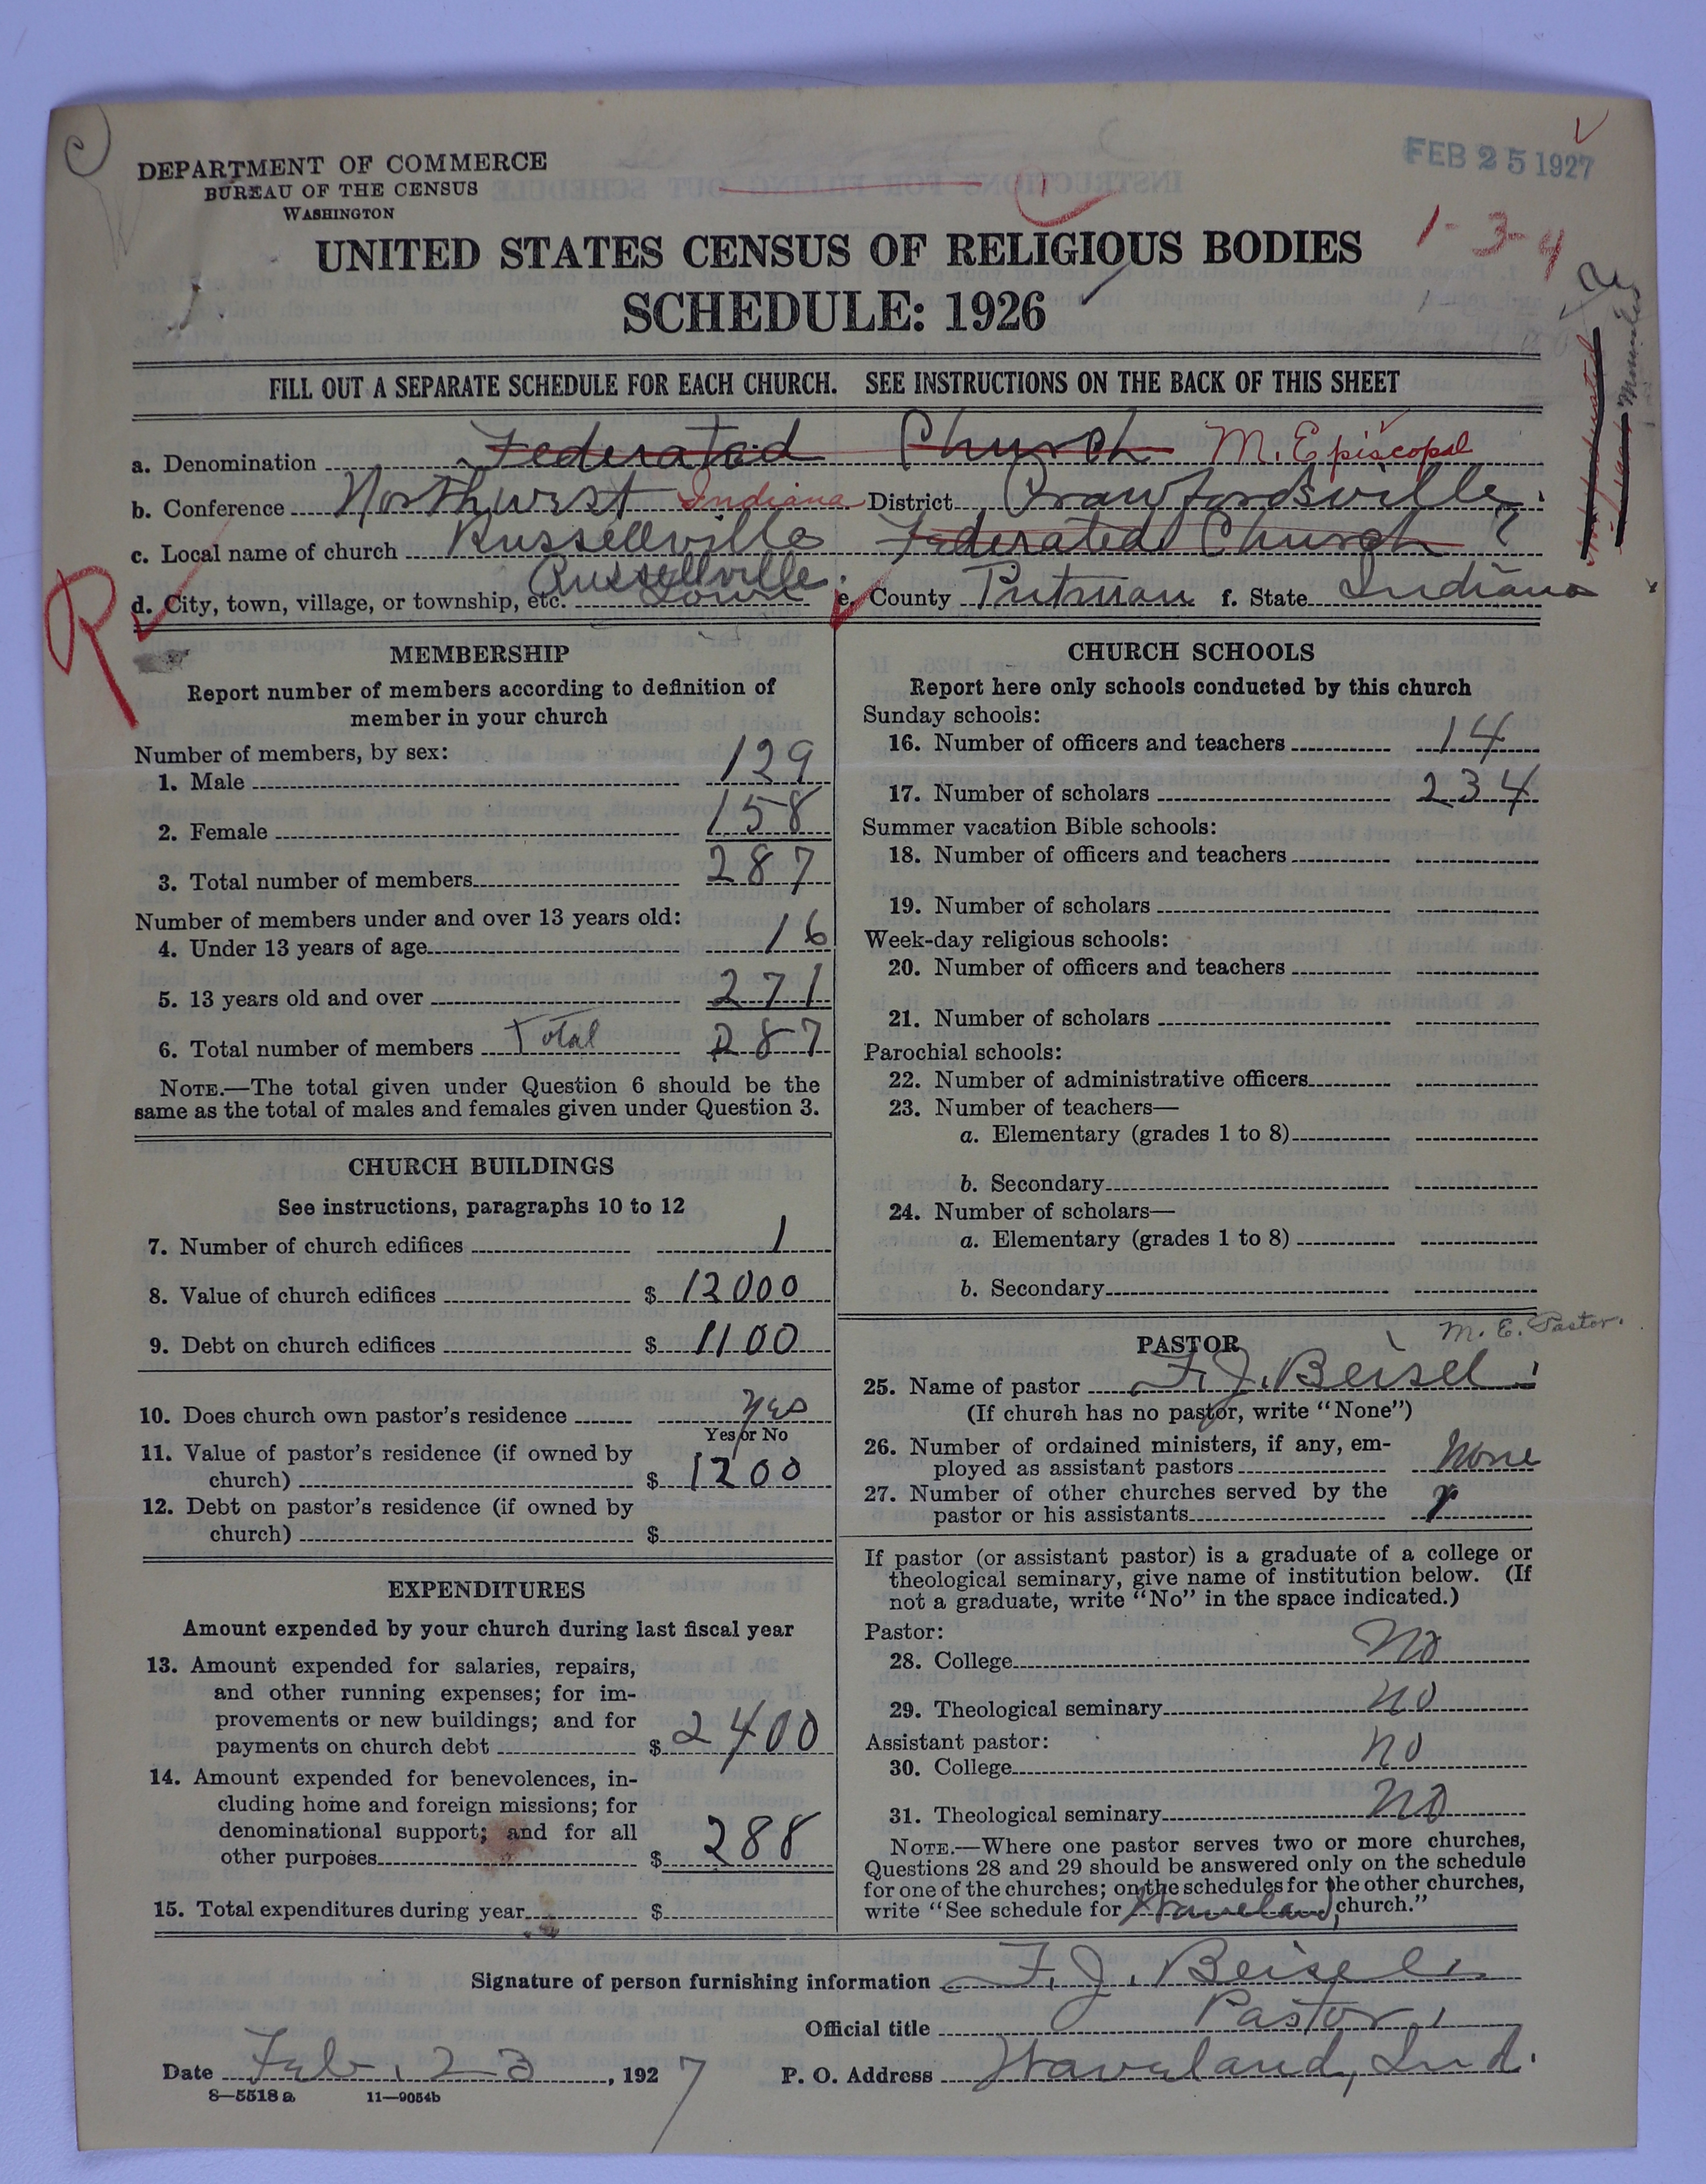 FEB 25 1927
DEPARTMENT OF COMMERCE
BUREAU OF THE CENSUS
WASHINGTON
1-3-4
UNITED STATES CENSUS OF RELIGIOUS BODIES
SCHEDULE: 1926
FILL OUT A SEPARATE SCHEDULE FOR EACH CHURCH. SEE INSTRUCTIONS ON THE BACK OF THIS SHEET
a. Denomination Federated Church M. Episcopal
b. Conference Northwest Indiana District Crawfordsville
c. Local name of church Russellville Federated Church ?
Russellville
d. City, town, village, or township, etc. Town e. County Putnam f. State Indiana
R
MEMBERSHIP
Report number of members according to definition of
member in your church
Number of members, by sex:
1. Male 129
2. Female 158
3. Total number of members 287
Number of members under and over 13 years old:
4. Under 13 years of age 16
5. 13 years old and over 271
6. Total number of members Total 287
NOTE.—The total given under Question 6 should be the
same as the total of males and females given under Question 3.
CHURCH BUILDINGS
See instructions, paragraphs 10 to 12
7. Number of church edifices 1
8. Value of church edifices $ 12000
9. Debt on church edifices $ 1100
10. Does church own pastor's residence yes
Yes or No
11. Value of pastor's residence (if owned by
church) $ 1200
12. Debt on pastor's residence (if owned by
church) $
EXPENDITURES
Amount expended by your church during last fiscal year
13. Amount expended for salaries, repairs,
and other running expenses; for im-
provements or new buildings; and for
payments on church debt $ 2400
14. Amount expended for benevolences, in-
cluding home and foreign missions; for
denominational support; and for all
other purposes $ 288
15. Total expenditures during year $
CHURCH SCHOOLS
Report here only schools conducted by this church
Sunday schools:
16. Number of officers and teachers 14
17. Number of scholars 234
Summer vacation Bible schools:
18. Number of officers and teachers
19. Number of scholars
Week-day religious schools:
20. Number of officers and teachers
21. Number of scholars
Parochial schools:
22. Number of administrative officers
23. Number of teachers—
a. Elementary (grades 1 to 8)
b. Secondary
24. Number of scholars—
a. Elementary (grades 1 to 8)
b. Secondary
M. E. Pastor.
PASTOR
25. Name of pastor F. J. Beisel
(If church has no pastor, write "None")
26. Number of ordained ministers, if any, em-
ployed as assistant pastors None
27. Number of other churches served by the
pastor or his assistants
If pastor (or assistant pastor) is a graduate of a college or
theological seminary, give name of institution below. (If
not a graduate, write "No" in the space indicated.)
Pastor:
28. College No
29. Theological seminary no
Assistant pastor:
30. College no
31. Theological seminary No
NOTE.—Where one pastor serves two or more churches,
Questions 28 and 29 should be answered only on the schedule
for one of the churches; on the schedules for the other churches,
write "See schedule for Waveland church."
Signature of person furnishing information F. J. Beisel
Official title Pastor
Date Feb. 23, 1927 P. O. Address Waveland, Ind.
8—5518 a 11—9054b